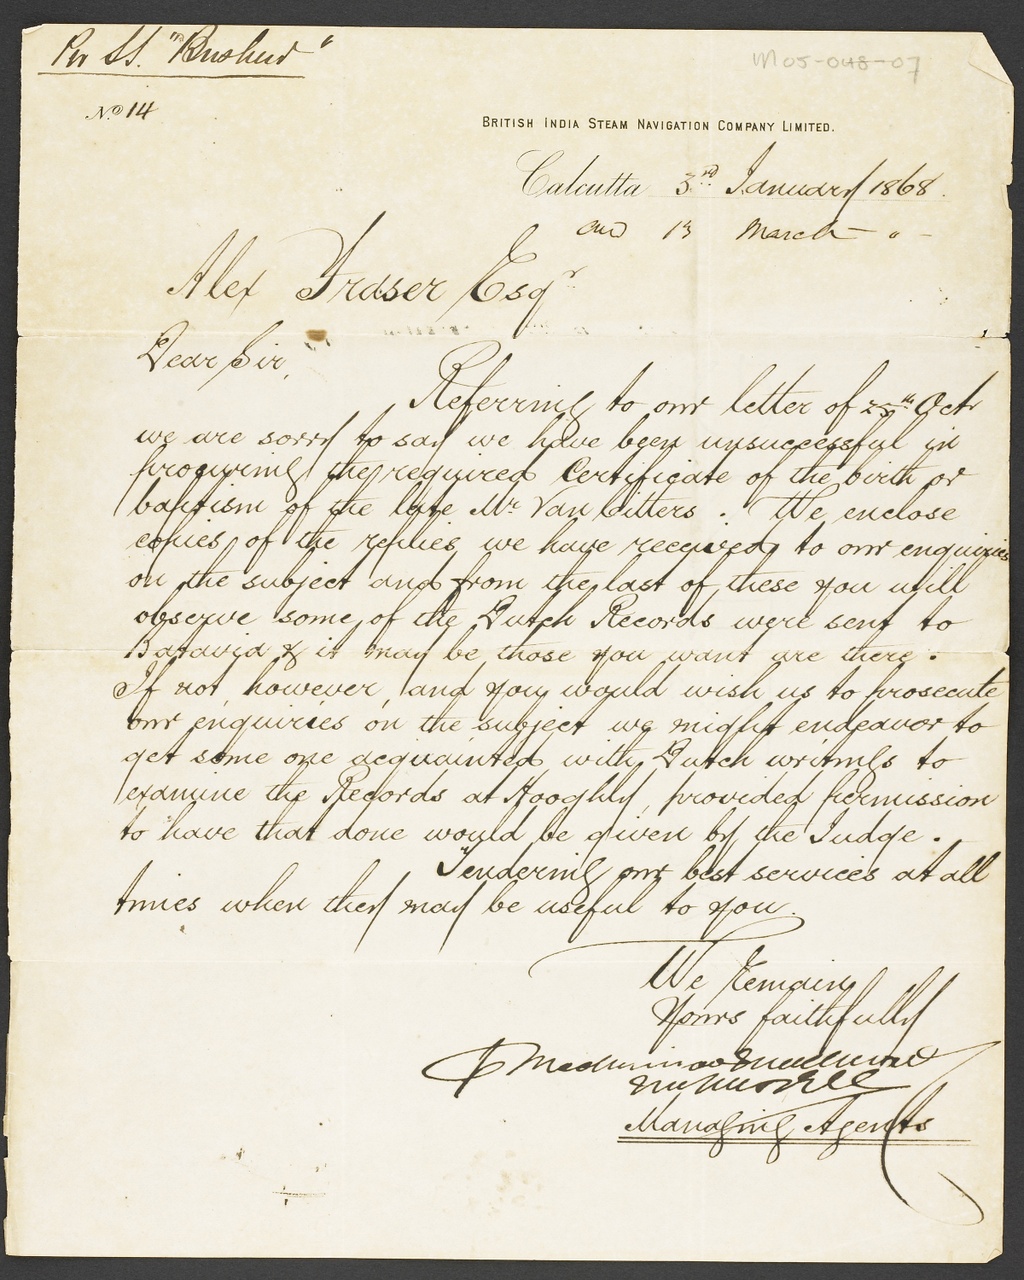 Per SS. "Busheer"
M05-048-07
No. 14
BRITISH INDIA STEAM NAVIGATION COMPANY LIMITED.
Calcutta 3rd January 1868.
and 13 March " -
Alex Fraser Esqr
Dear Sir,
Referring to our letter of 25th Octr
we are sorry to say we have been unsuccessful in
procuring the required Certificate of the birth or
baptism of the late Mr Van Citters. We enclose
copies of the replies we have received to our enquiries
on the subject and from the last of these you will
observe some of the Dutch Records were sent to
Batavia & it may be those you want are there.
If not, however, and you would wish us to prosecute
our enquiries on the subject we might endeavor to
get some one acquainted with Dutch writings to
examine the Records at Hooghly, provided permission
to have that done would be given by the Judge.
Tendering our best services at all
times when they may be useful to you.
We remain
Yours faithfully
Managing Agents